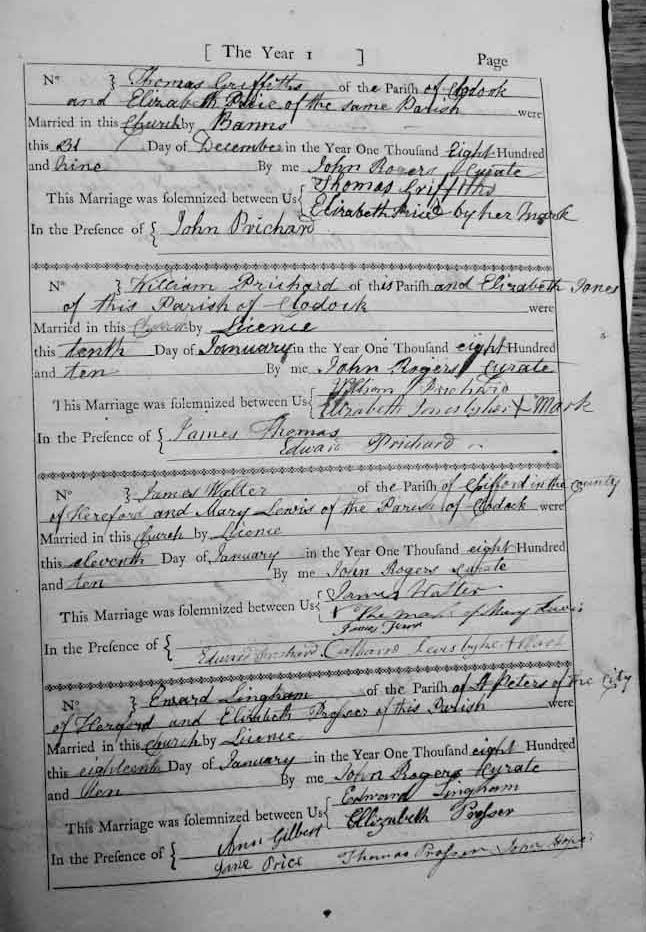 [ The Year 1 ] Page
No } Thomas Griffiths of the Parish of Clodock
and Elizabeth Price of the same Parish were
Married in this Church by Banns
this 31 Day of December in the Year One Thousand Eight Hundred
and nine By me John Rogers Curate
This Marriage was solemnized between Us { Thomas Griffiths
Elizabeth Price by her Mark
In the Presence of { John Prichard
No } William Prichard of this Parish and Elizabeth Jones
of this Parish of Clodock were
Married in this Church by Licence
this tenth Day of January in the Year One Thousand eight Hundred
and ten By me John Rogers Curate
This Marriage was solemnized between Us { William Prichard
Elizabeth Jones by her X Mark
In the Presence of { James Thomas
Edward Prichard
No } James Walter of the Parish of Clifford in the County
of Hereford and Mary Lewis of the Parish of Clodock were
Married in this Church by Licence
this eleventh Day of January in the Year One Thousand eight Hundred
and ten By me John Rogers Curate
This Marriage was solemnized between Us { James Walter
X The mark of Mary Lewis
James
In the Presence of {
Edward Prichard Catharine Lewis by her + Mark
No } Edward Lingham of the Parish of St Peters of the City
of Hereford and Elizabeth Prosser of this Parish were
Married in this Church by Licence
this eighteenth Day of January in the Year One Thousand eight Hundred
and ten By me John Rogers Curate
This Marriage was solemnized between Us { Edward Lingham
Elizabeth Prosser
In the Presence of { Ann Gilbert
Jane Price Thomas Prosser John Hope